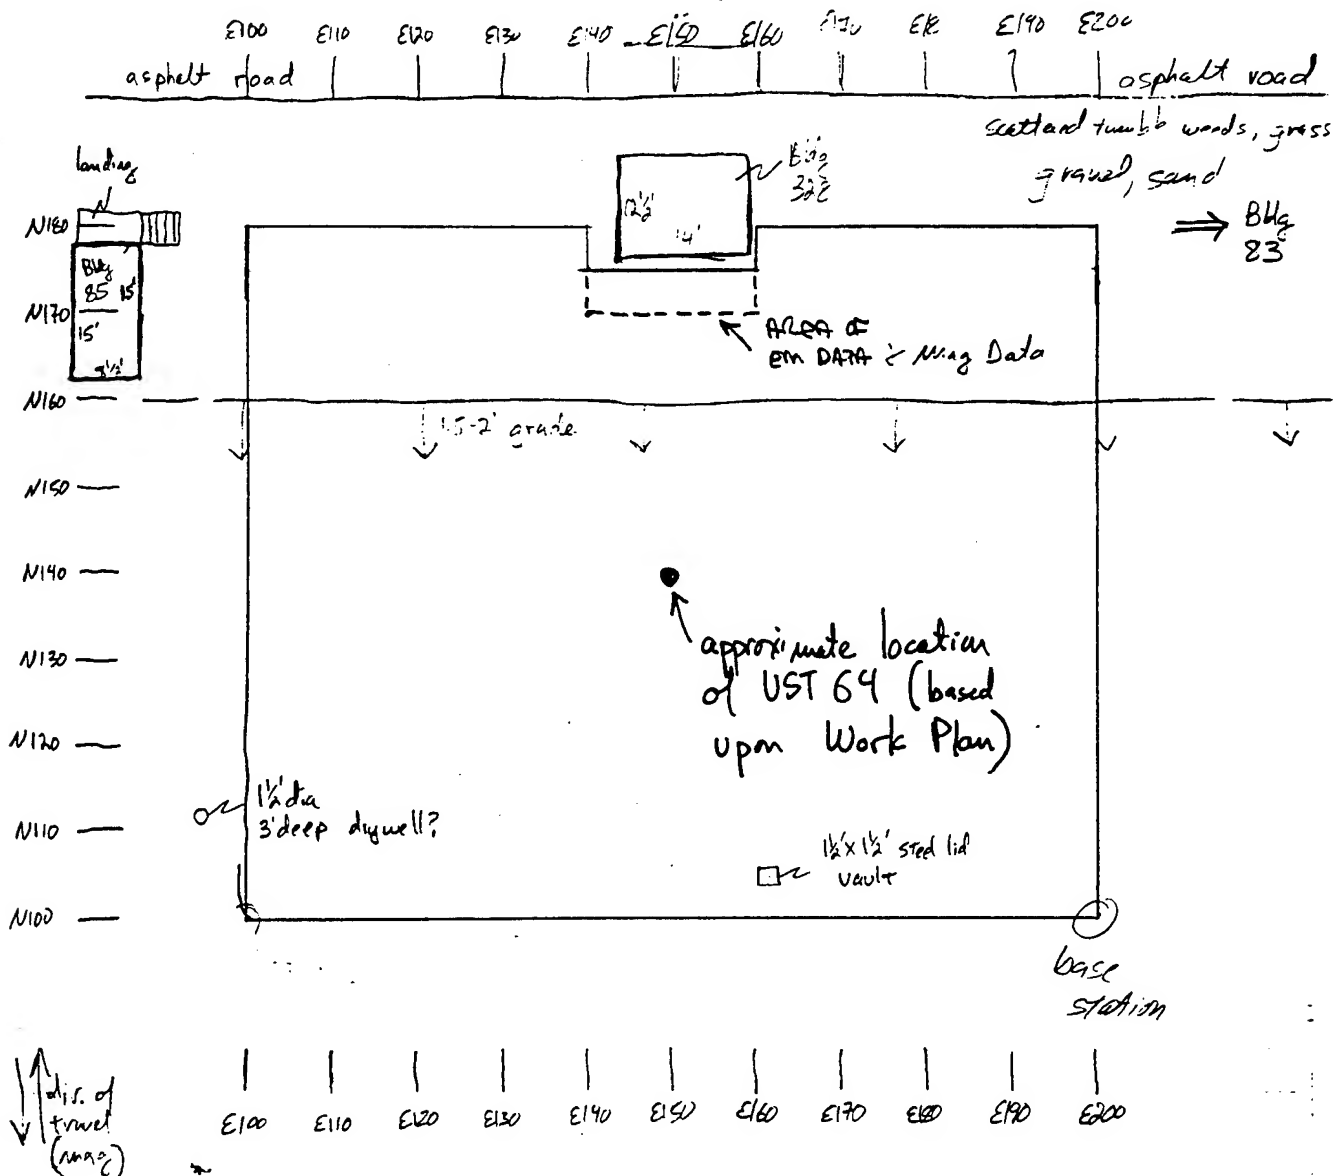 E100 E110 E120 E130 E140 E150 E160 E170 E18 E190 E200
asphalt road
asphalt road
grass
gravel, sand
landing
Bldg
12½'
14'
N180
Bldg
83
Bldg
85 15'
N170
15'
8½'
AREA OF
EM DATA & Mag Data
N160
1.5-2' grade
N150
N140
approximate location
of UST 64 (based
upon Work Plan)
N130
N120
1½' dia
3' deep drywell?
N110
1½' x 1½' steel lid
vault
N100
base
station
dir. of
travel
(mag)
E100 E110 E120 E130 E140 E150 E160 E170 E180 E190 E200